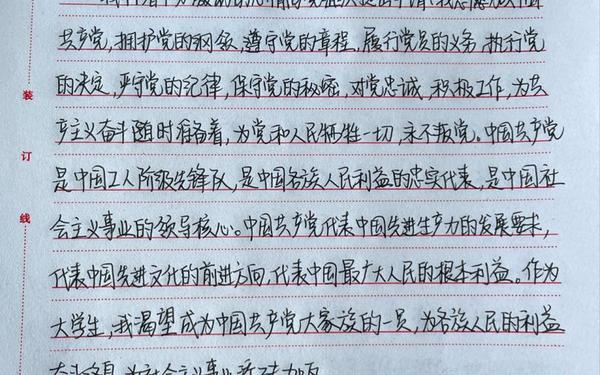 共产党,拥护党的纲领,遵守党的章程,履行党员的义务,执行党
的决定,严守党的纪律,保守党的秘密,对党忠诚,积极工作,为共
产主义奋斗随时准备着,为党和人民牺牲一切,永不叛党。中国共产党
是中国工人阶级先锋队,是中国各族人民利益的忠实代表,是中国社
会主义事业的领导核心。中国共产党代表中国先进生产力的发展要求,
代表中国先进文化的前进方向,代表中国最广大人民的根本利益。作为
大学生,我渴望成为中国共产党大家族的一员,为各族人民的利益
装
订
线